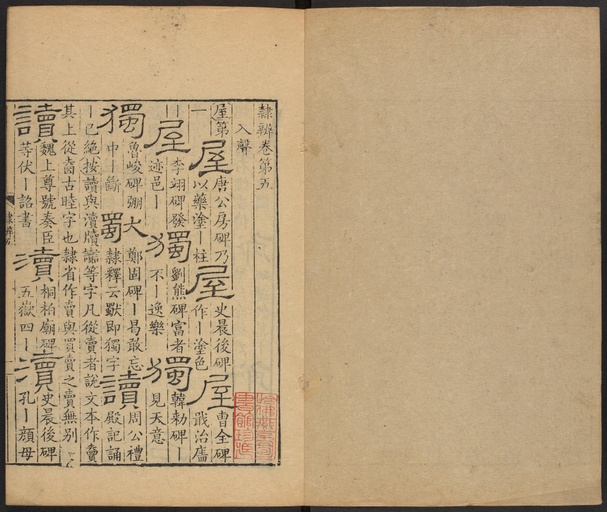 隸辨卷第五
入聲
屋第一
屋 唐公房碑乃
以藥塗｜柱
屋 史晨後碑
作｜塗色
屋 曹全碑
戢治廧
｜
屋 李翊碑發
迹邑｜
獨 劉熊碑富者
不｜逸樂
獨 韓勑碑｜
見天意
獨 魯峻碑
中｜斷
獨 鄭固碑｜曷敢忘
隸釋云即獨字
讀 周公禮
殿記誦
｜已絕按讀與瀆牘等字凡從賣者說文本作
其上從古睦字也隸省作賣與買賣之賣無別
讀 魏上尊號奏臣
等伏｜詔書
瀆 桐柏廟碑
五嶽四｜
瀆 史晨後碑
孔｜顏母